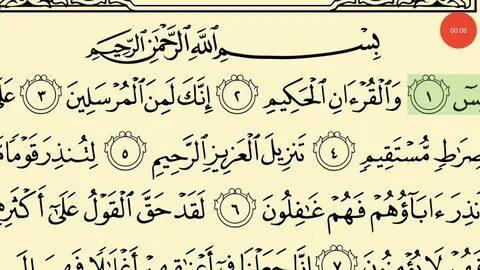 00:08
بِسْمِ ٱللَّهِ ٱلرَّحْمَٰنِ ٱلرَّحِيمِ
يسٓ ١ وَٱلْقُرْءَانِ ٱلْحَكِيمِ ٢ إِنَّكَ لَمِنَ ٱلْمُرْسَلِينَ ٣
صِرَٰطٍ مُّسْتَقِيمٍ ٤ تَنزِيلَ ٱلْعَزِيزِ ٱلرَّحِيمِ ٥ لِتُنذِرَ قَوْمًا مَّا
ءَابَآؤُهُمْ فَهُمْ غَٰفِلُونَ ٦ لَقَدْ حَقَّ ٱلْقَوْلُ عَلَىٰٓ
لَا يُؤْمِنُونَ ٧ إِنَّا جَعَلْنَا فِىٓ أَعْنَٰقِهِمْ أَغْلَٰلًا فَهِىَ